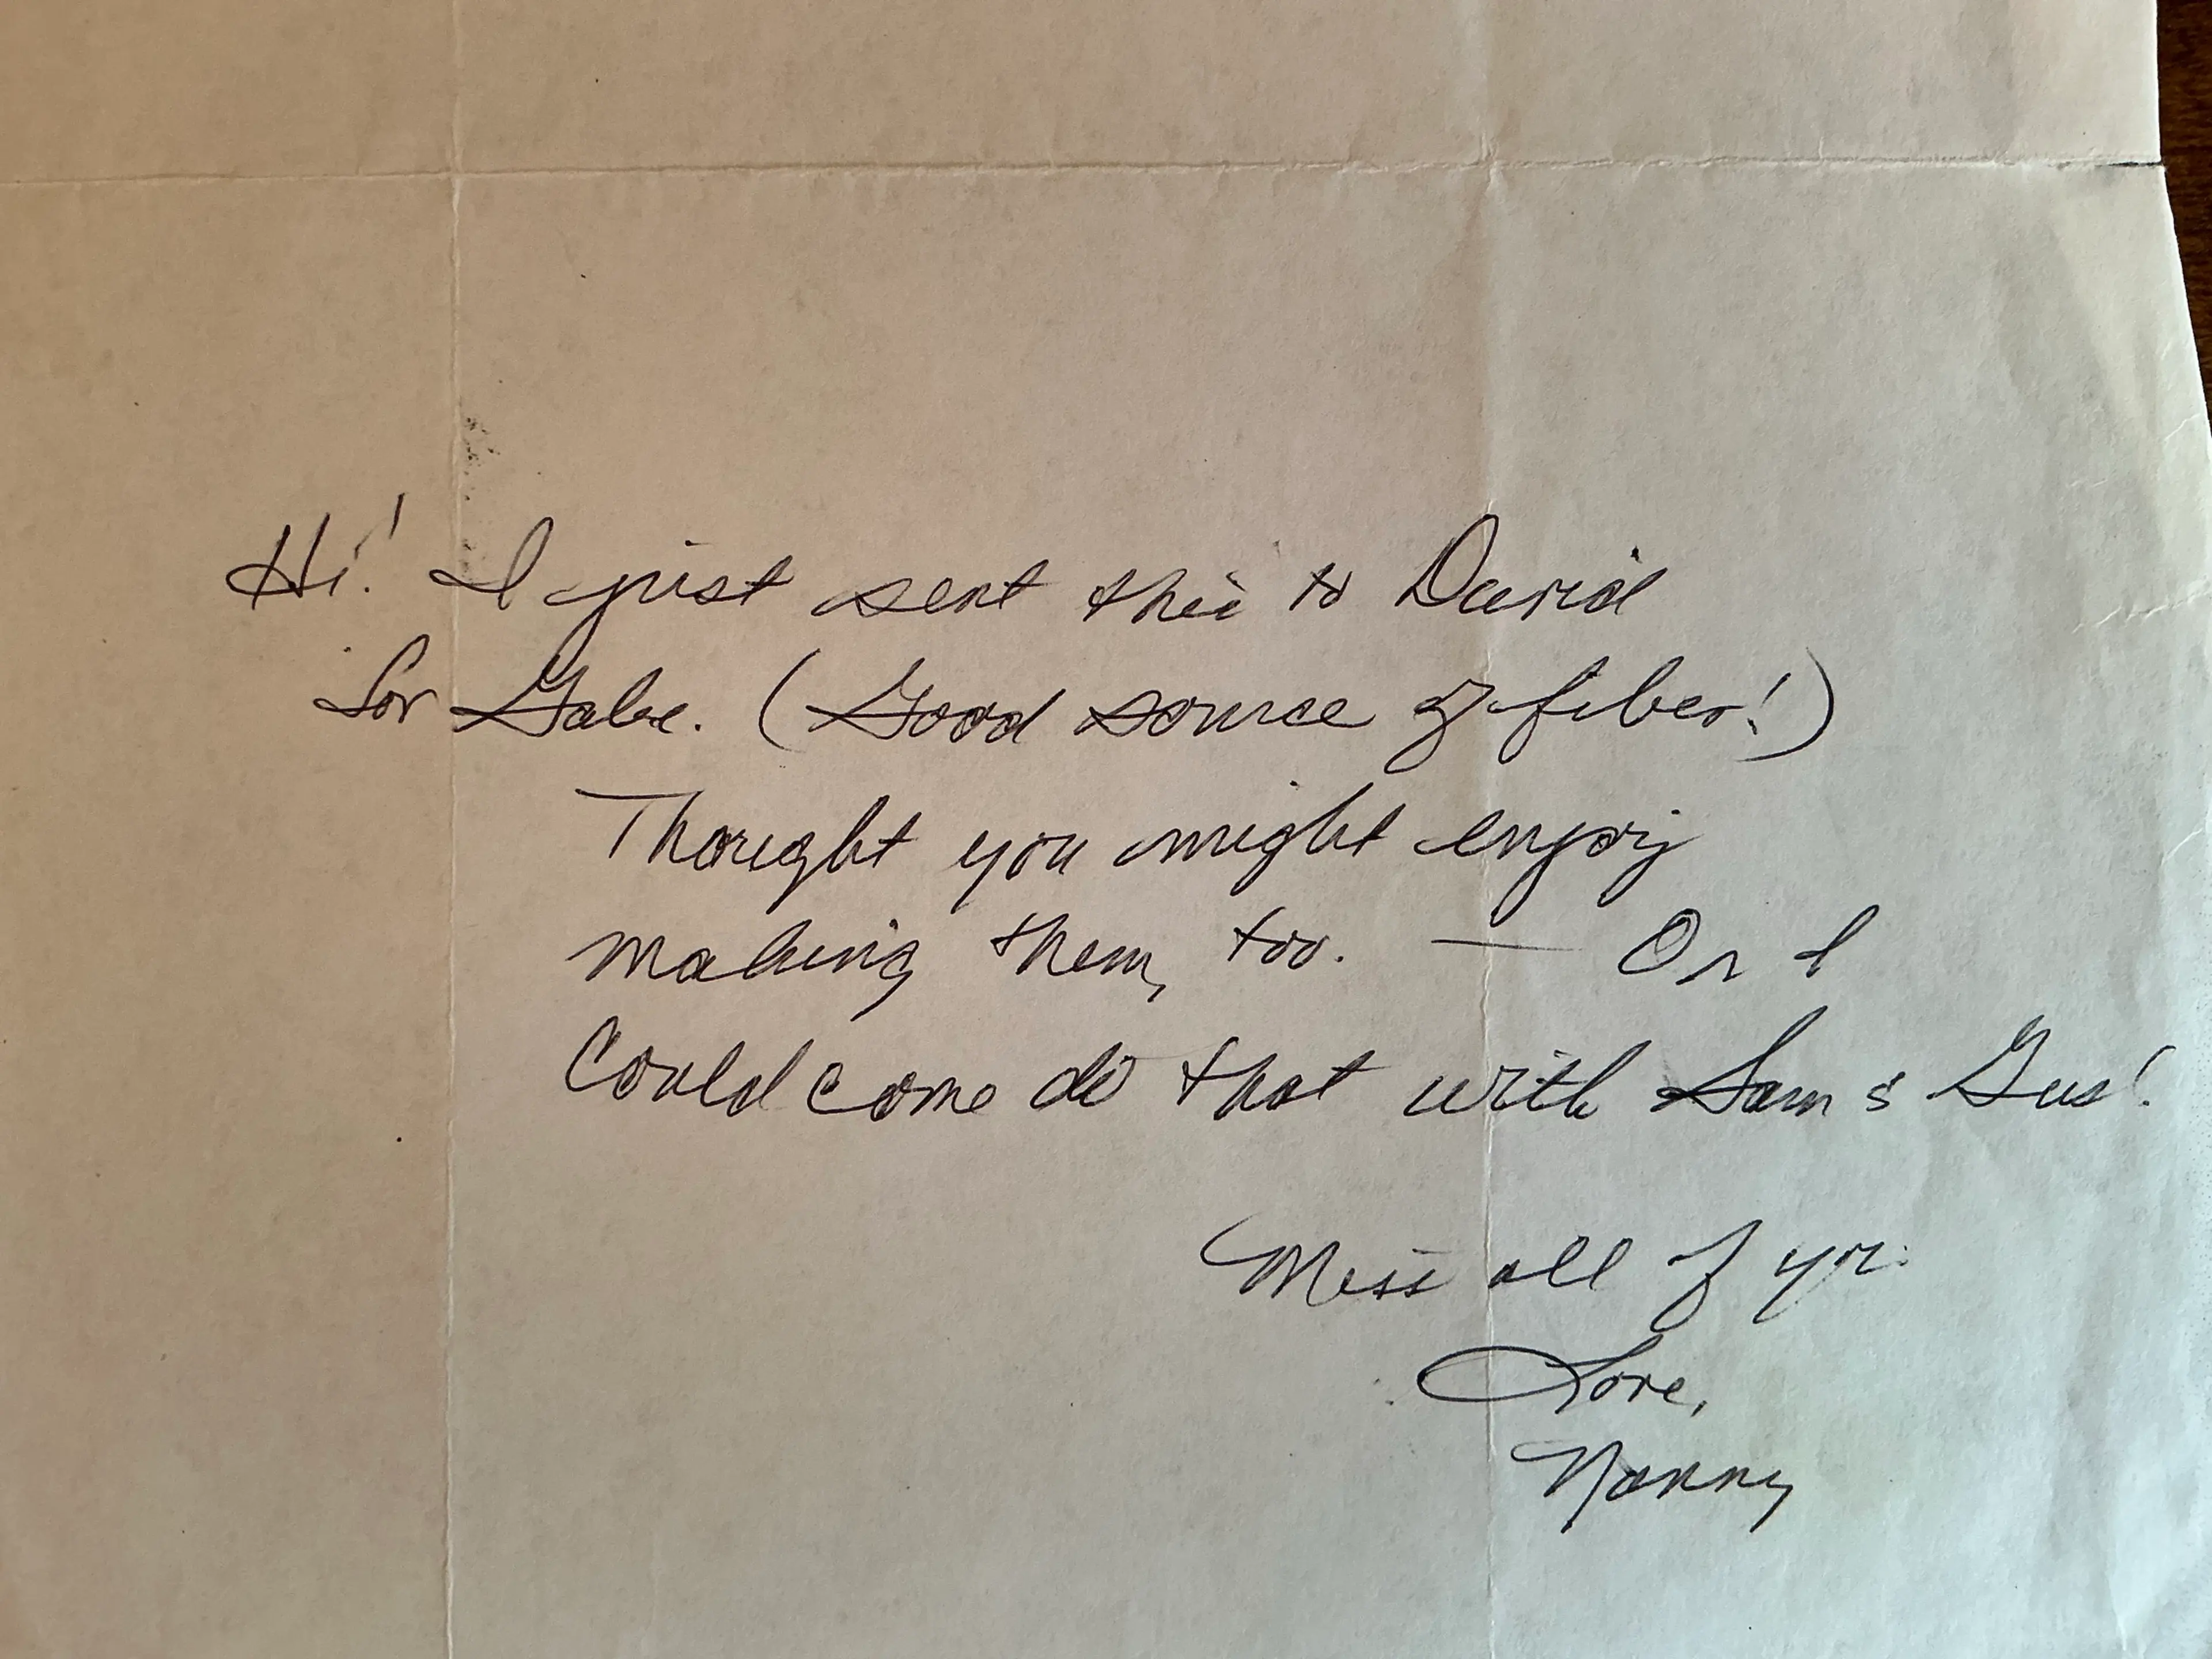 Hi! I just sent this to David
for Gabe. (Good source of fiber!)
Thought you might enjoy
making them, too. — Or I
Could come do that with Sam & Gus!
Miss all of you.
Love,
Nanny